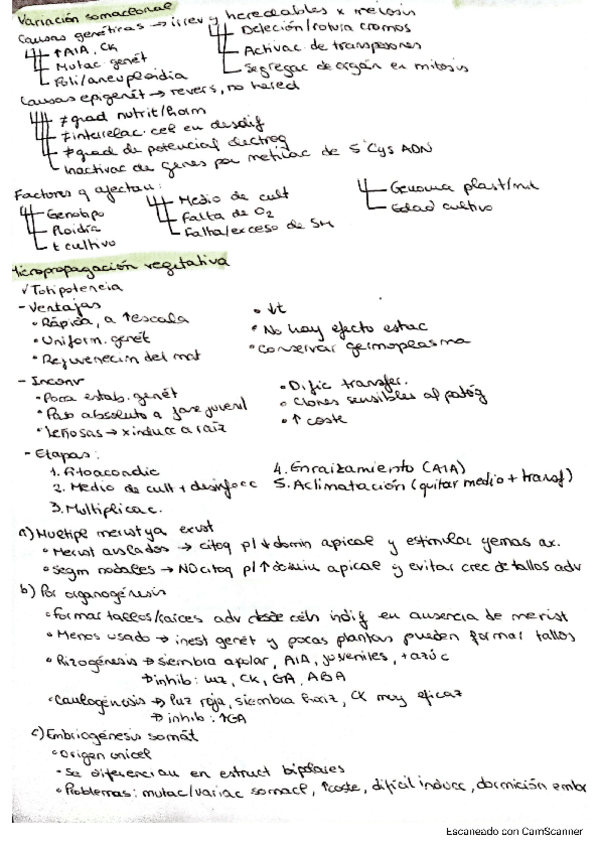 Variación somaclonal
Causas genéticas → irrev y heredables x meiosis
↑AIA, CK
Mutac. genét
Poli/aneuploidia
Deleción/rotura cromos
Activac. de transposones
Segregac de orgán en mitosis
Causas epigenét → revers, no hered
≠ grad nutrit/horm
≠ interrelac. cel en desdif
≠ grad de potencial electroq
Inactivac de genes por metilac de 5'Cys ADN
Factores q afectan:
Genotipo
Ploidía
t cultivo
Medio de cult
Falta de O2
Falta/exceso de SM
Genoma plast/mit
Edad cultivo
Micropropagación vegetativa
√Totipotencia
- Ventajas
• Rápida, a ↑escala
• Uniform. genét
• Rejuvenecim del mat
• ↓t
• No hay efecto estac
• Conservar germoplasma
- Inconv
• Poca estab. genét
• Paso absoluto a fase juvenil
• Leñosas → x induc a raíz
• Dific transfer.
• Clones sensibles al patóg
• ↑ coste
- Etapas:
1. Fitoacondic
2. Medio de cult + desinfecc
3. Multiplicac.
4. Enraizamiento (AIA)
5. Aclimatación (quitar medio + transf)
a) Multipl merist ya exist
• Merist aislados → citoq p/ ↓ domin apical y estimular yemas ax.
• Segm nodales → NO citoq p/ ↑ domin apical y evitar crec de tallos adv
b) Por organogénesis
• Formar tallos/raíces adv desde céls indif en ausencia de merist
• Menos usado → inest genét y pocas plantas pueden formar tallos
• Rizogénesis → siembra apolar, AIA, juveniles, + azúc
→ inhib: luz, CK, GA, ABA
• Caulogénesis → luz roja, siembra horiz, CK muy eficaz
→ inhib: ↑GA
c) Embriogénesis somát
• Origen unicel
• Se diferencian en estruct bipolares
• Problemas: mutac/variac somacl, ↑coste, difícil inducc, dormición embr
Escaneado con CamScanner